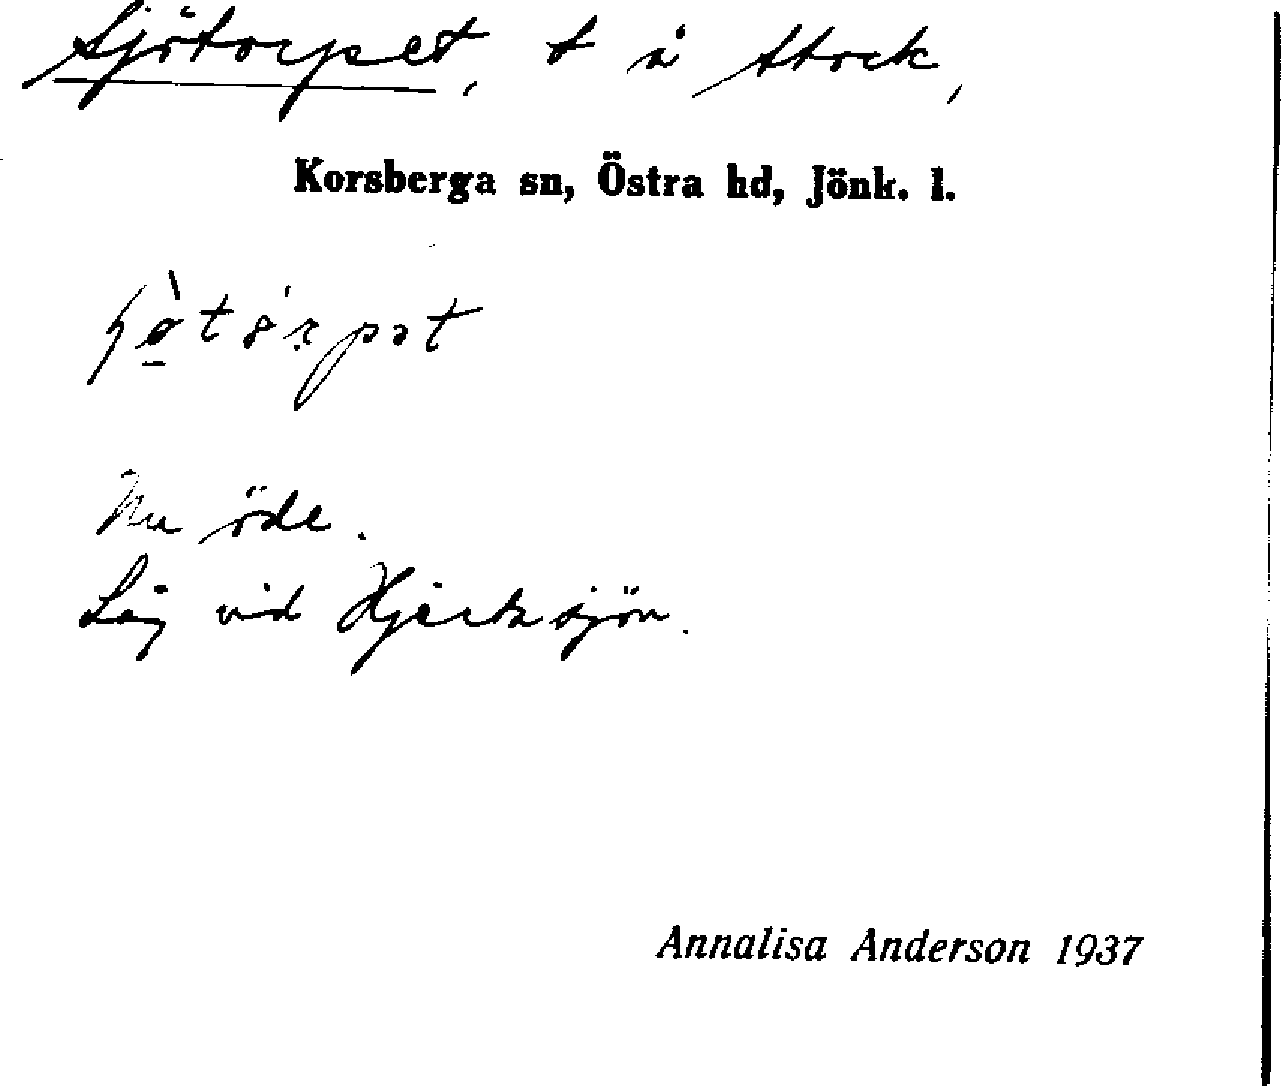 Sjötorpet, t å Stock,
Korsberga sn, Östra hd, Jönk. l.
Nu öde.
Låg vid Hjärtasjön.
Annalisa Anderson 1937